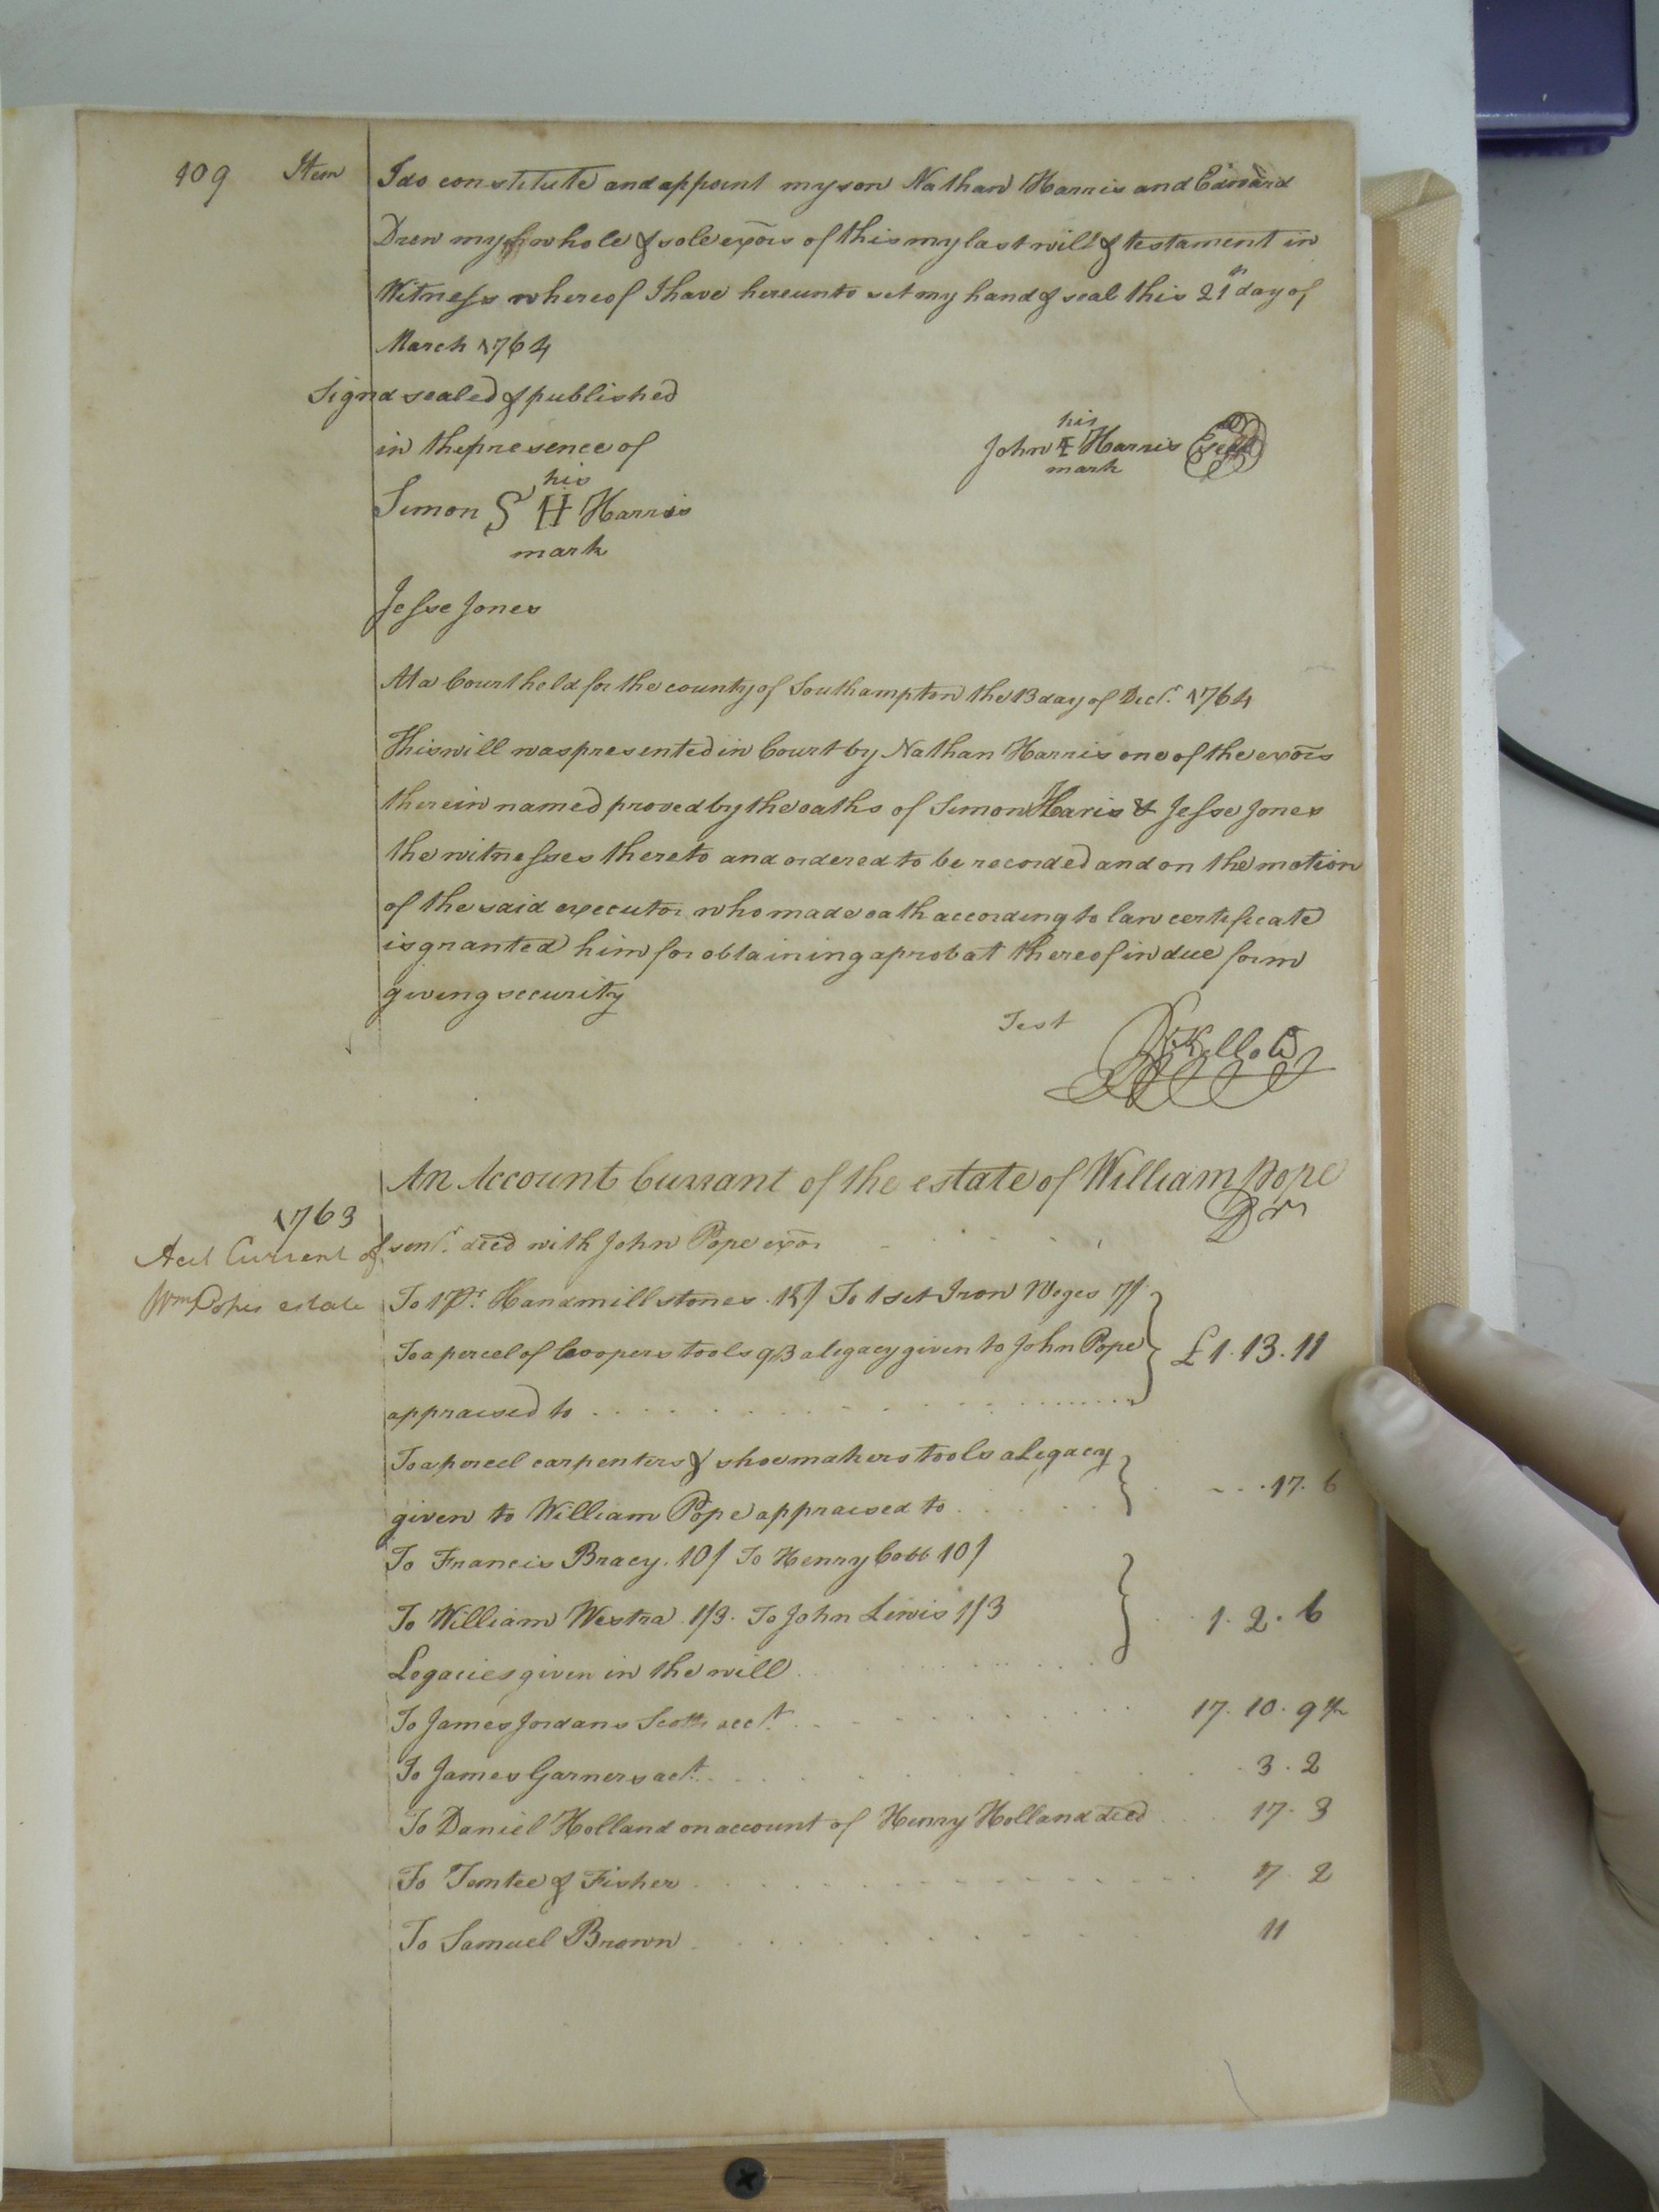 109 Item I do constitute and appoint my son Nathan Harris and Edward
Drew my whole & sole exōrs of this my last will & testament in
Witness whereof I have hereunto set my hand & seal this 21st day of
March 1764
Signd sealed & published
in the presence of
his
John E Harris Seal
mark
his
Simon S H Harris
mark
Jesse Jones
At a Court held for the county of Southampton the 13 day of Decr. 1764
This will was presented in Court by Nathan Harris one of the exōrs
therein named proved by the oaths of Simon Haris & Jesse Jones
the witnesses thereto and ordered to be recorded and on the motion
of the said executor who made oath according to law certificate
is granted him for obtaining a probat thereof in due form
giving security
Test
R. Kello C
An Account Currant of the estate of William Pope
Dr
1763
Act Current of
Wm Popes estate
senr. decd with John Pope exor
To 1 Pr. Handmill stones 15/ To 1 set Iron Weges 7/
To a percel of Coopers tools 9/3 a legacy given to John Pope
appraised to £1.13.11
To a percel carpenters & shoemakers tools a Legacy
given to William Pope appraised to 17.6
To Francis Bracy 10/ To Henry Cobb 10/
To William Westra 1/3. To John Lewis 1/3
Legacies given in the will 1.2.6
To James Jordans Scotts acct. 17.10.9½
To James Garners act. 3.2
To Daniel Holland on account of Henry Holland decd 17.3
To & Fisher 7.2
To Samuel Brown 11